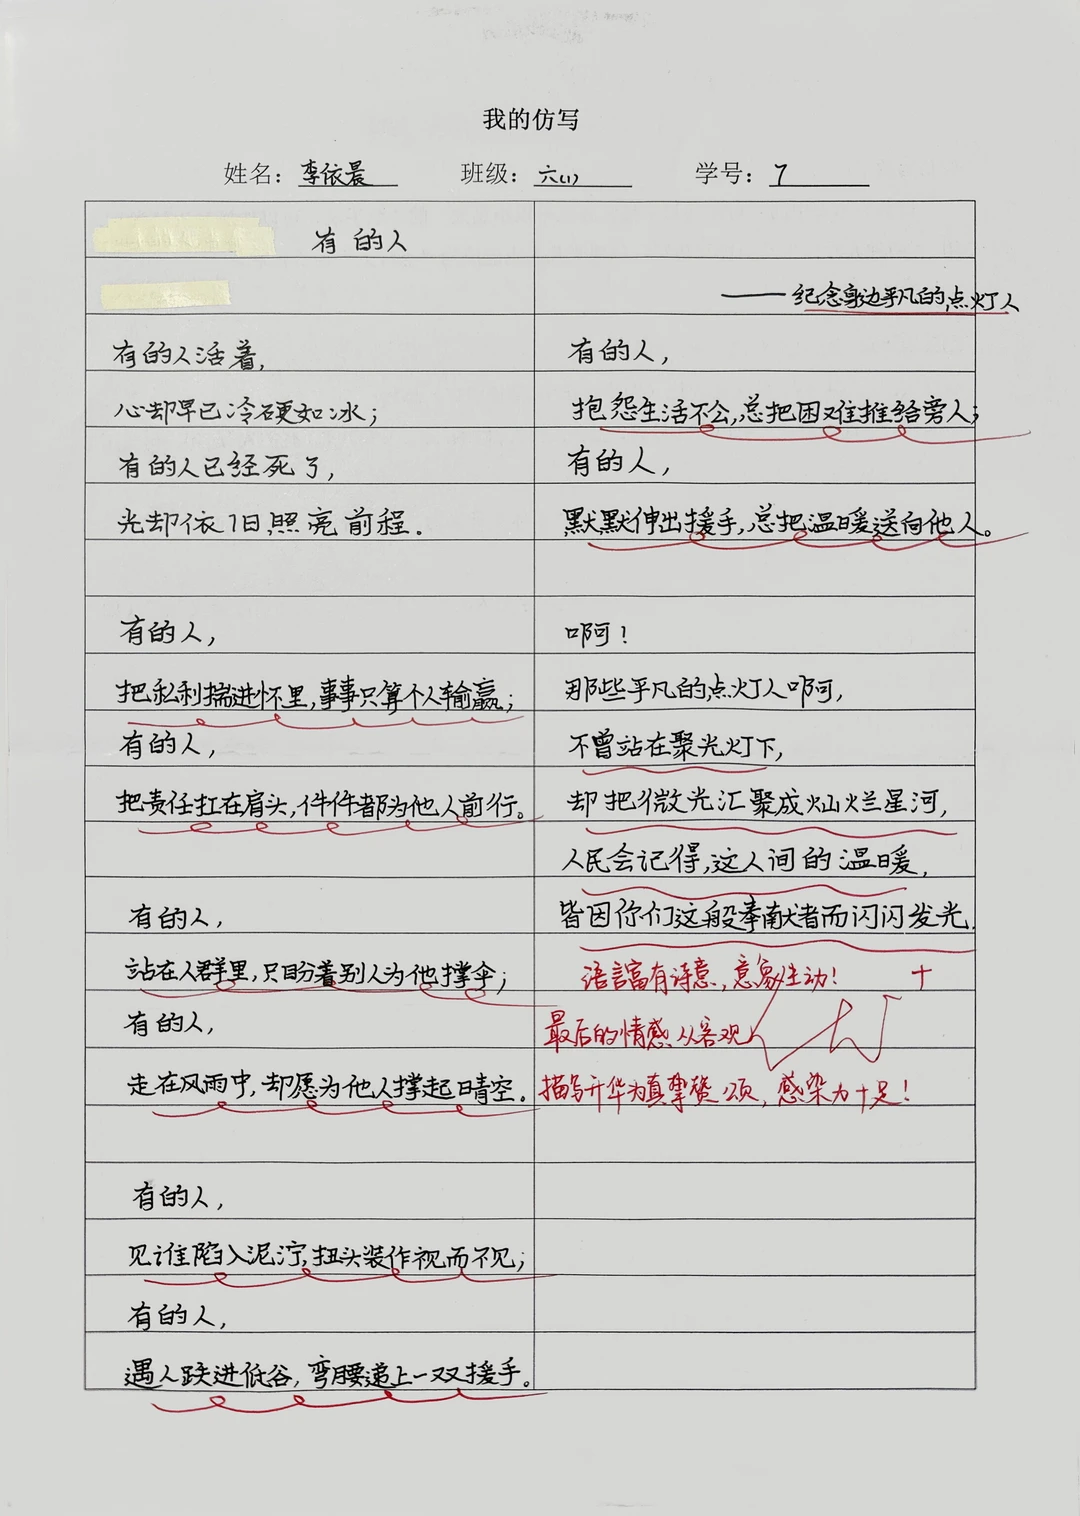 我的仿写
姓名：李依晨 班级：六(1) 学号：7
有的人
——纪念身边平凡的点灯人
有的人活着，
心却早已冷硬如冰；
有的人已经死了，
光却依旧照亮前程.
有的人，
把私利揣进怀里，事事只算个人输赢；
有的人，
把责任扛在肩头，件件都为他人前行。
有的人，
站在人群里，只盼着别人为他撑伞；
有的人，
走在风雨中，却愿为他人撑起晴空.
有的人，
见谁陷入泥泞，扭头装作视而不见；
有的人，
遇人跌进低谷，弯腰递上一双援手。
有的人，
抱怨生活不公，总把困难推给旁人；
有的人，
默默伸出援手，总把温暖送向他人。
啊！
那些平凡的点灯人啊，
不曾站在聚光灯下，
却把微光汇聚成灿烂星河，
人民会记得，这人间的温暖，
皆因你们这般奉献者而闪闪发光.
语言富有诗意，意象生动！
最后的情感从客观
描写升华为真挚赞颂，感染力十足！